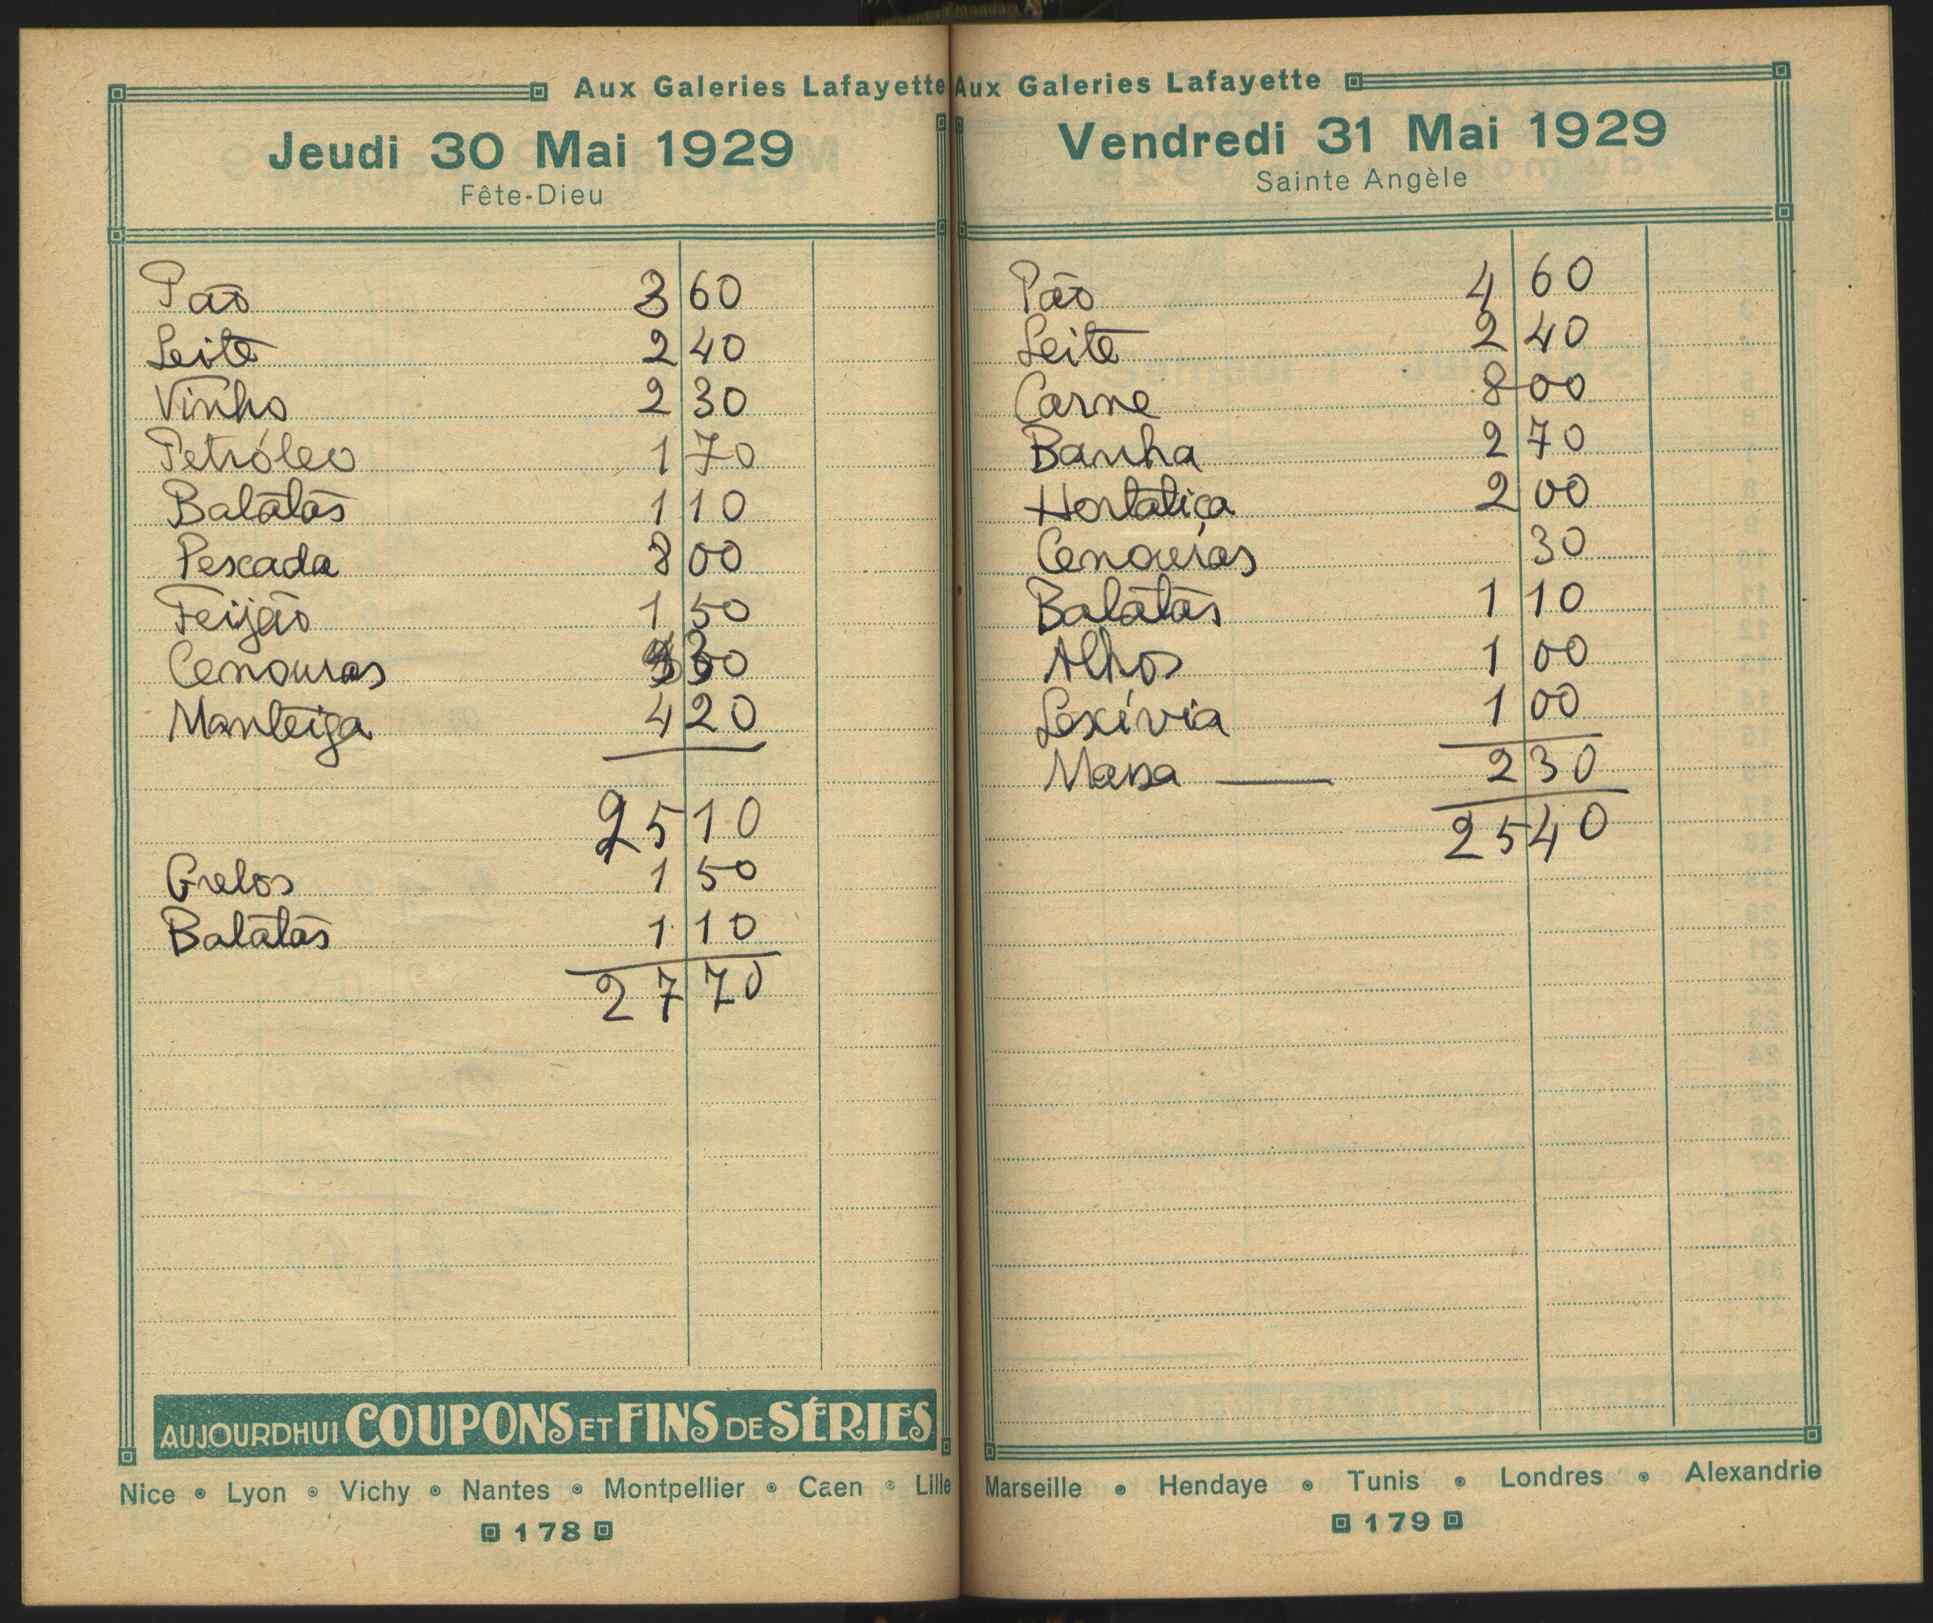 Aux Galeries Lafayette
Jeudi 30 Mai 1929
Fête-Dieu
Pão 3 60
Leite 2 40
Vinho 2 30
Petróleo 1 70
Batatas 1 10
Pescada 8 00
Feijão 1 50
Cenouras 30
Manteiga 4 20
25 10
Grelos 1 50
Batatas 1 10
27 70
AUJOURDHUI COUPONS ET FINS DE SÉRIES
Nice • Lyon • Vichy • Nantes • Montpellier • Caen • Lille
178
Aux Galeries Lafayette
Vendredi 31 Mai 1929
Sainte Angèle
Pão 4 60
Leite 2 40
Carne 8 00
Banha 2 70
Hortaliça 2 00
Cenouras 30
Batatas 1 10
Alhos 1 00
Lexívia 1 00
Massa — 2 30
25 40
Marseille • Hendaye • Tunis • Londres • Alexandrie
179